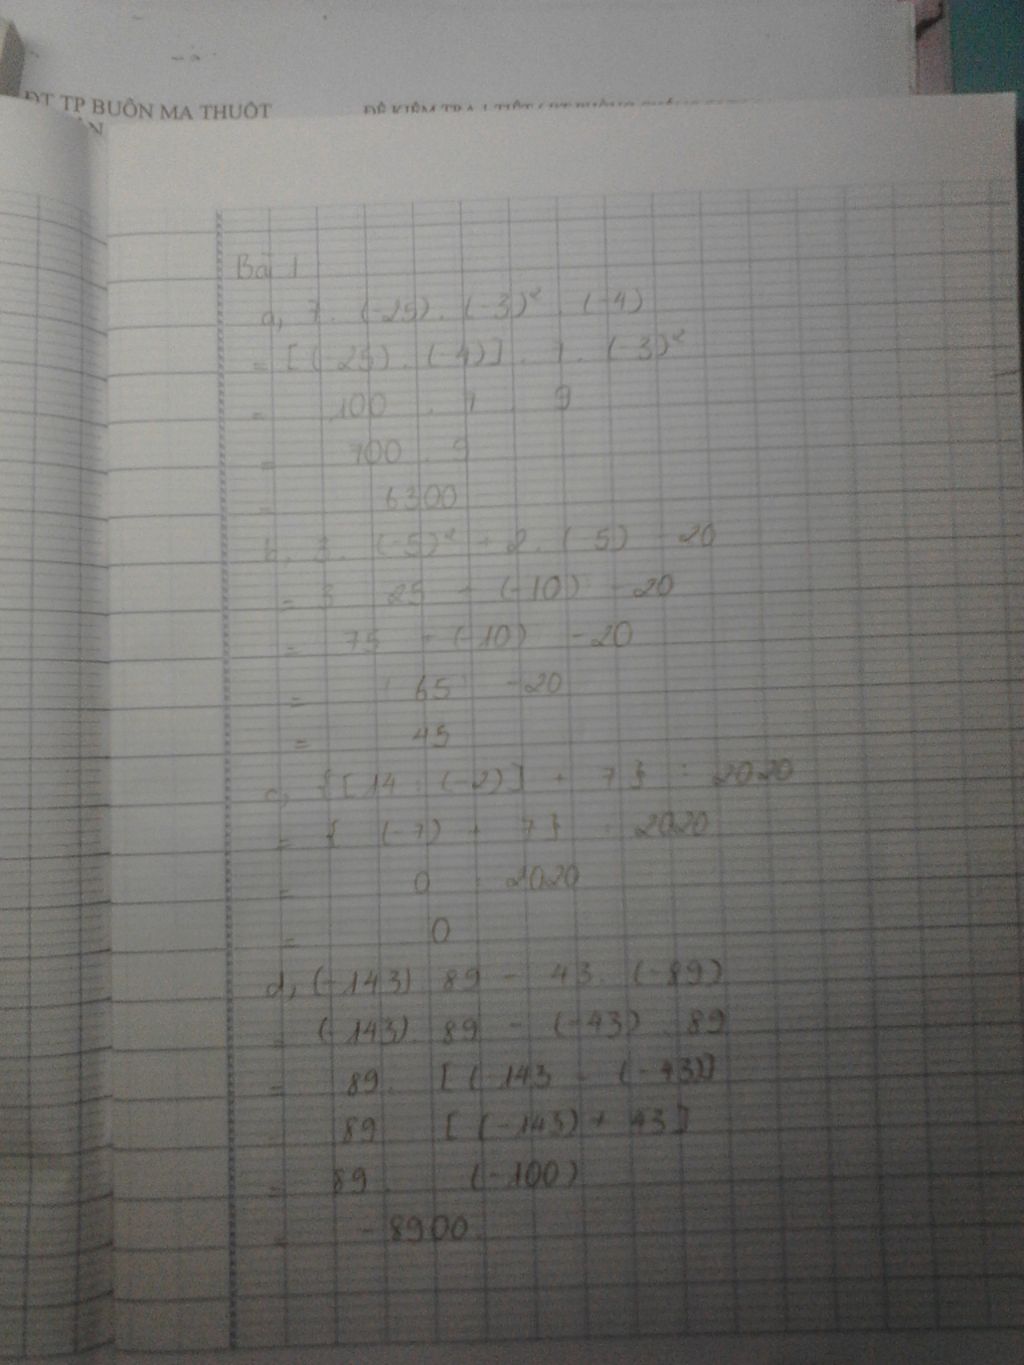 ĐT TP BUÔN MA THUỘT
ĐỀ KIỂM TRA 1 TIẾT
Bài 1
a, 7. (-25). (-3)² . (-4)
= [(-25) . (-4)] . 7 . (-3)²
= 100 . 7 . 9
= 700 . 9
= 6300
b, 3. (-5)² + 2. (-5) - 20
= 3 . 25 + (-10) - 20
= 75 + (-10) - 20
= 65 - 20
= 45
c, {[14 : (-2)] + 7} : 2020
= { (-7) + 7} : 2020
= 0 : 2020
= 0
d, (-143) . 89 - 43. (-89)
= (-143). 89 - (-43) . 89
= 89. [(-143 - (-43)]
89 [(-143) + 43]
= 89. (-100)
= -8900